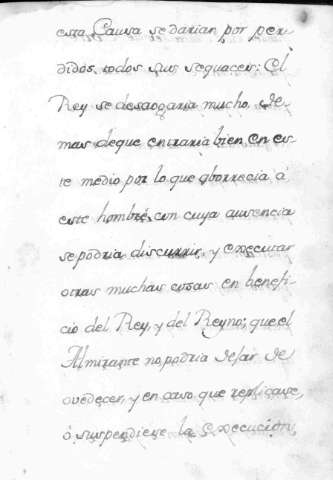 esta Causa se darian por per-
didos todos sus sequaces; El
Rey se desaogaria mucho, de
mas deque entraria bien en es-
te medio por lo que aborrecia á
este hombre, con cuya ausencia
se podria discurrir, y executar
otras muchas cosas en benefi-
cio del Rey, y del Reyno; que el
Almirante no podria dejar de
ovedecer, y en caso que replicase,
ó suspendiese la execucion,